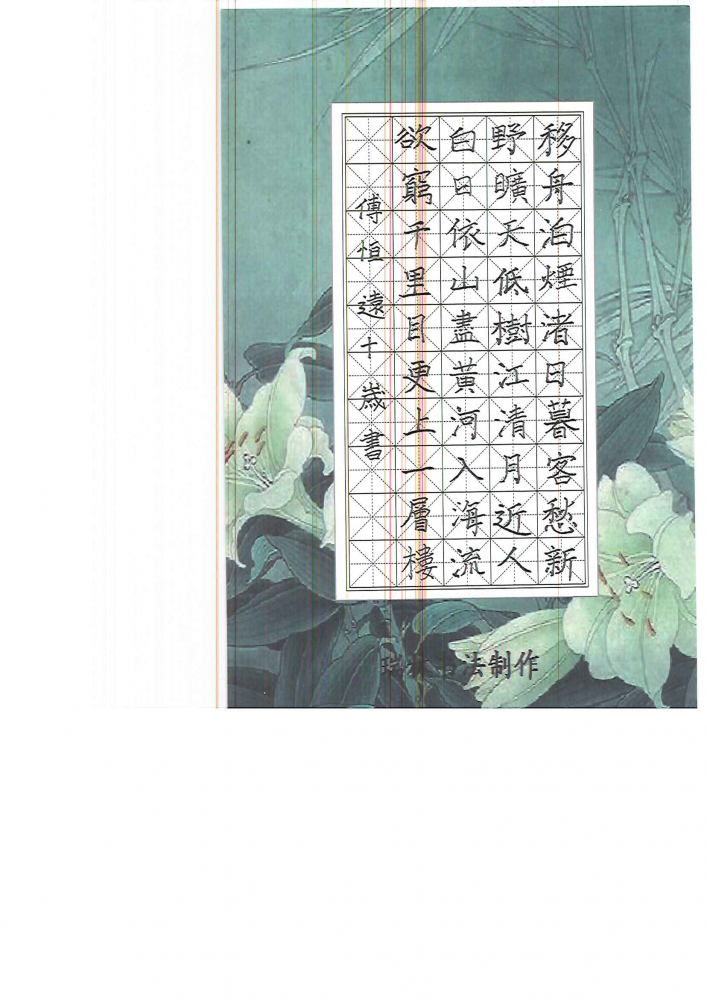 移舟泊煙渚日暮客愁新
野曠天低樹江清月近人
白日依山盡黃河入海流
欲窮千里目更上一層樓
傅恒遠十歲書
书法制作